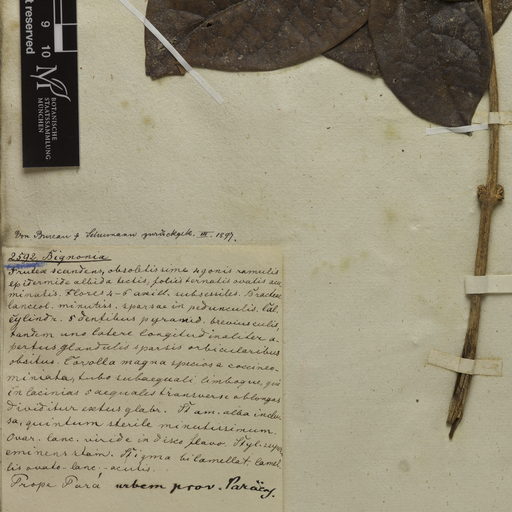 t reserved
9 10
BOTANISCHE
STAATSSAMMLUNG
MÜNCHEN
Von Bureau & Schumann zurückgek. III. 1897.
2592. Bignonia
Frutex scandens, obsoletissime 4gonis ramulis
epidermide albida tectis, foliis ternatis ovatis acu
minatis. Flores 4-6 axill. subsessiles. Bracteae
lanceol. minutis. sparsae in pedunculis. Cal.
cylindr. 5 dentibus pyramid. breviusculis,
tandem uno latere longitudinaliter a-
pertus glandulis sparsis orbicularibus
obsitus. Corolla magna speciosa coccineo-
miniata, tubo subaequali limboque, qui
in lacinias 5 aequales transverse oblongas
dividitur extus glabr. Stam. alba inclu-
sa, quintum sterile minutissimum.
Ovar. lanc. viride in disco flavo. Styl. supe
eminens stam. Stigma bilamellat. lamel
lis ovato-lanc.-acutis.
Prope Pará urbem prov. Paraëns.